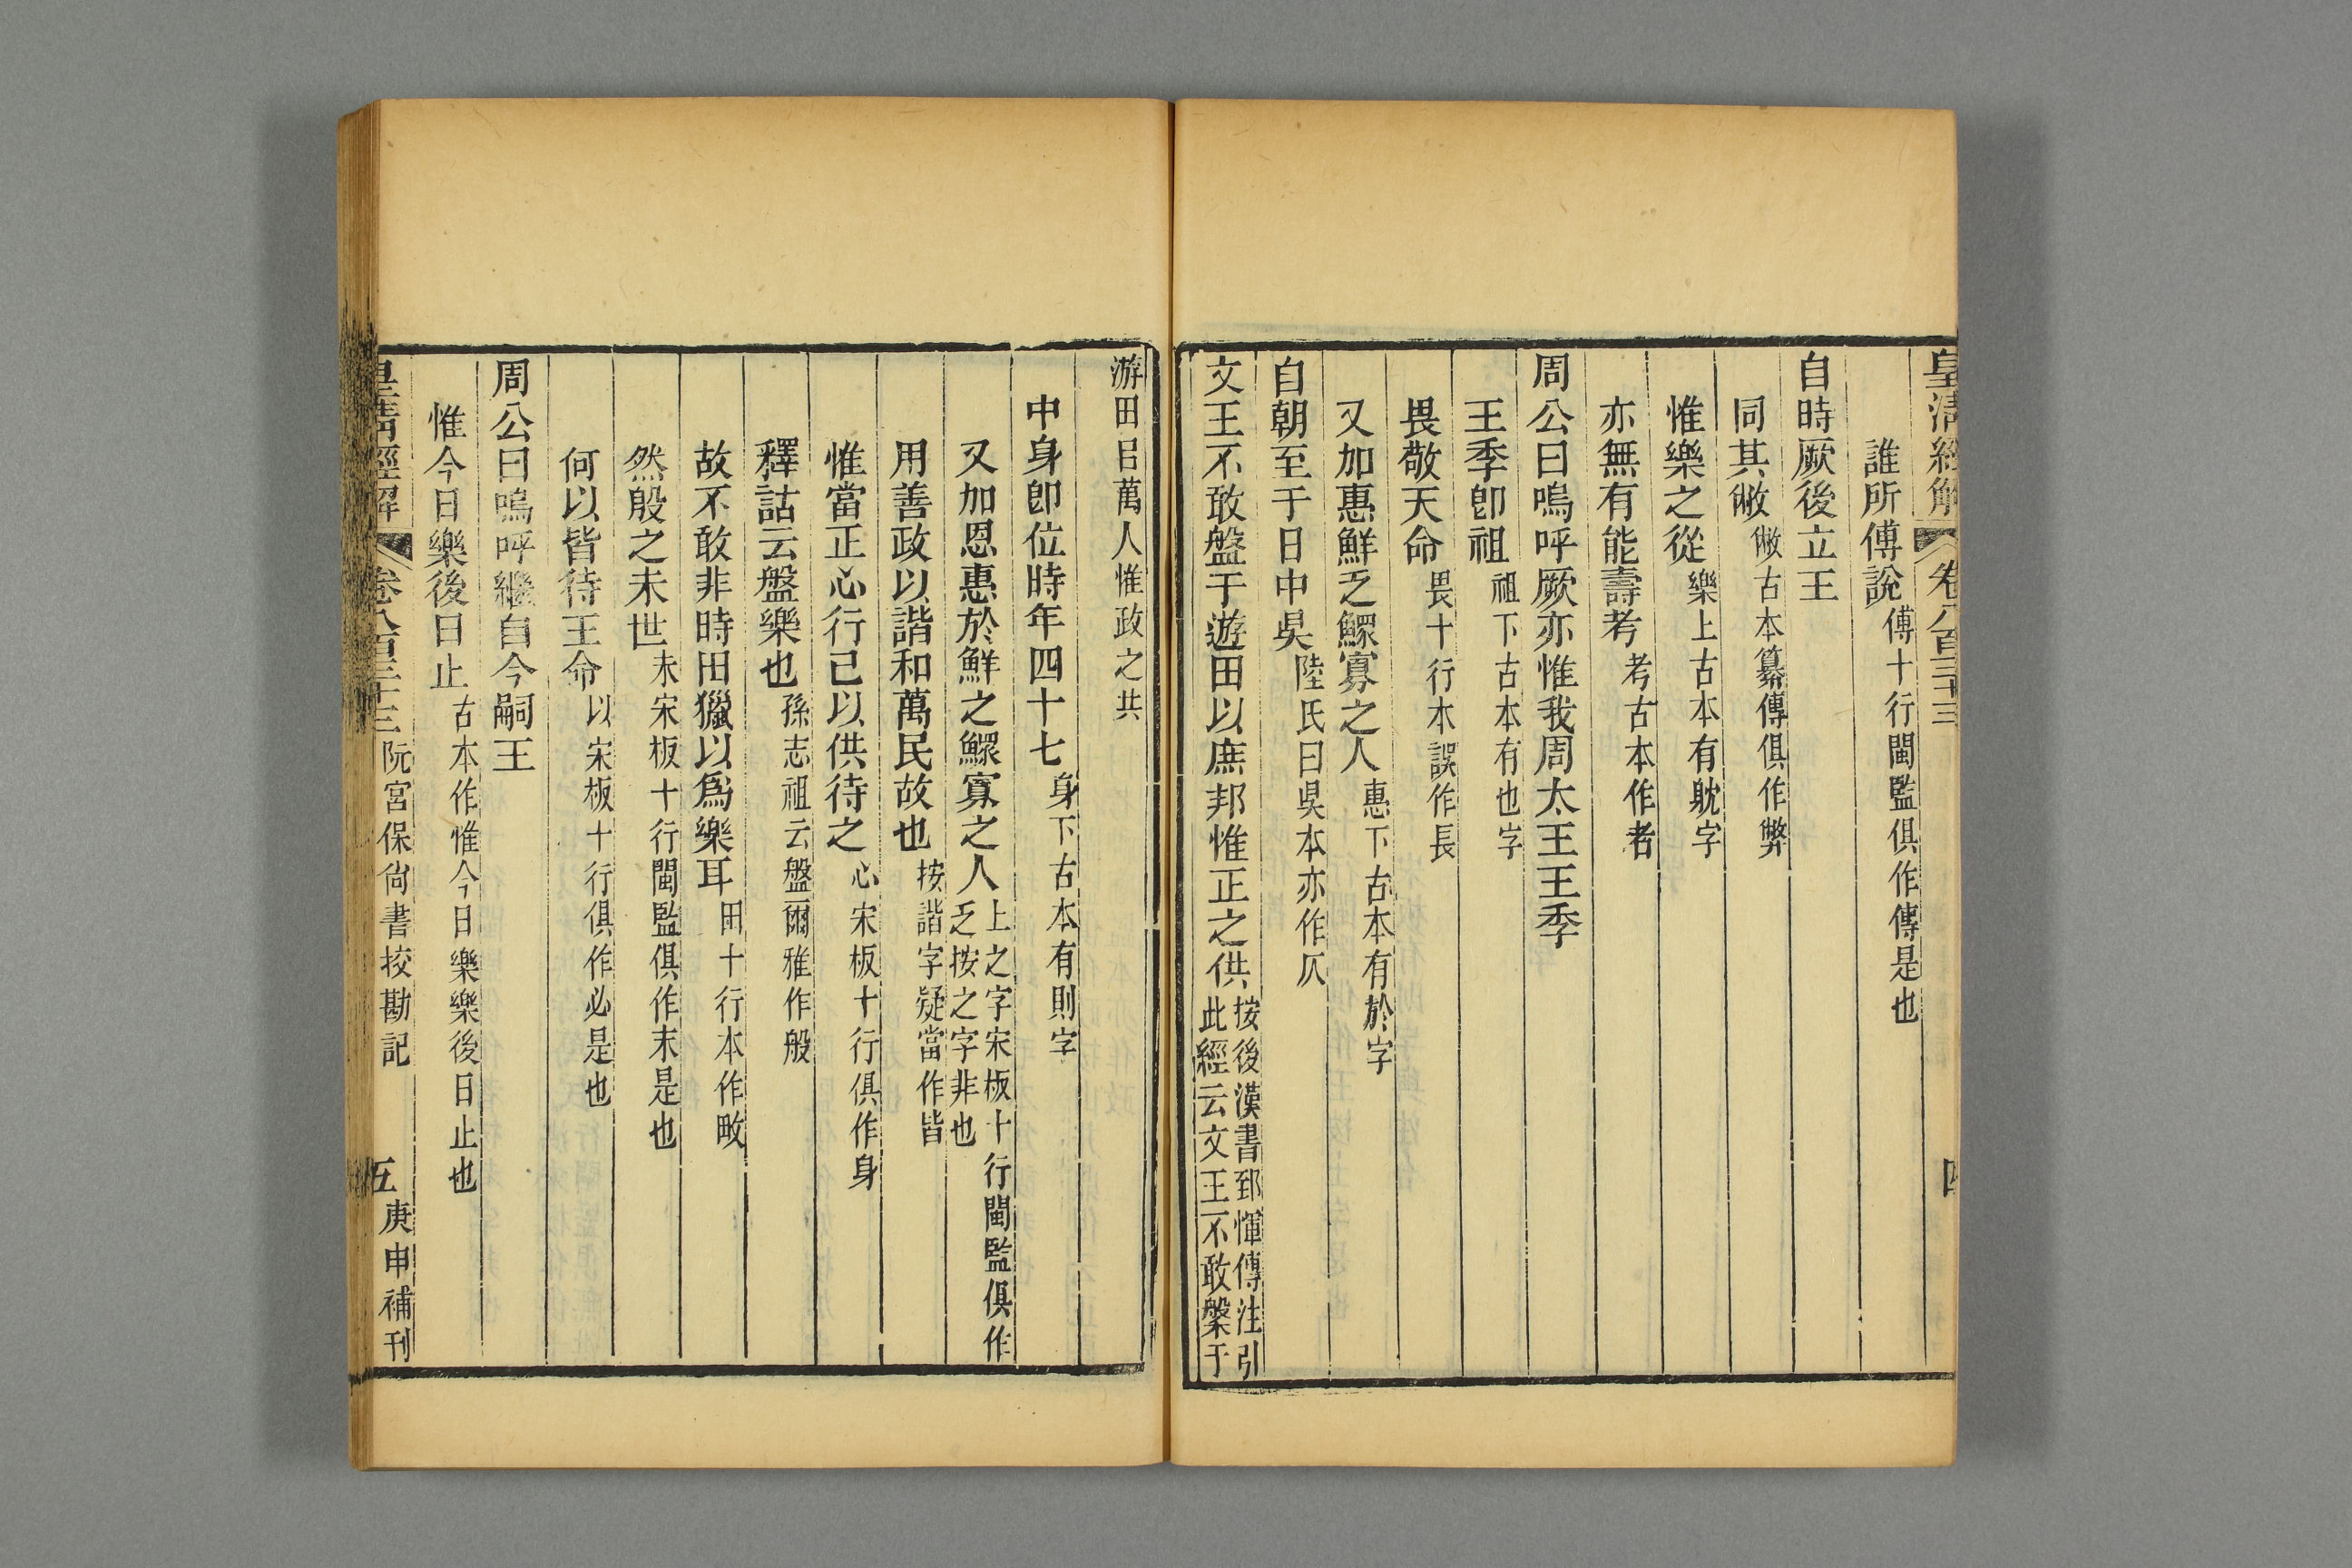 皇清經解 卷八百三十三 四
誰所傅說傅十行閩監俱作傳是也
自時厥後立王
同其敝敝古本纂傳俱作弊
惟樂之從樂上古本有躭字
亦無有能壽考考古本作者
周公曰嗚呼厥亦惟我周太王王季
王季卽祖祖下古本有也字
畏敬天命畏十行本誤作長
又加惠鮮乏鰥寡之人惠下古本有於字
自朝至于日中吳陸氏曰吳本亦作仄
文王不敢盤于遊田以庶邦惟正之供按後漢書郅惲傳注引此經云文王不敢槃于
游田㠯萬人惟政之共
中身卽位時年四十七身下古本有則字
又加恩惠於鮮之鰥寡之人上之字宋板十行閩監俱作乏按之字非也
用善政以諧和萬民故也按諧字疑當作皆
惟當正心行己以供待之心宋板十行俱作身
釋詁云盤樂也孫志祖云盤爾雅作般
故不敢非時田獵以爲樂耳田十行本作畋
然殷之未世未宋板十行閩監俱作末是也
何以皆待王命以宋板十行俱作必是也
周公曰嗚呼繼自今嗣王
惟今日樂後日止古本作惟今日樂樂後日止也
皇清經解 卷八百三十三 阮宮保尙書挍勘記 五 庚申補刊